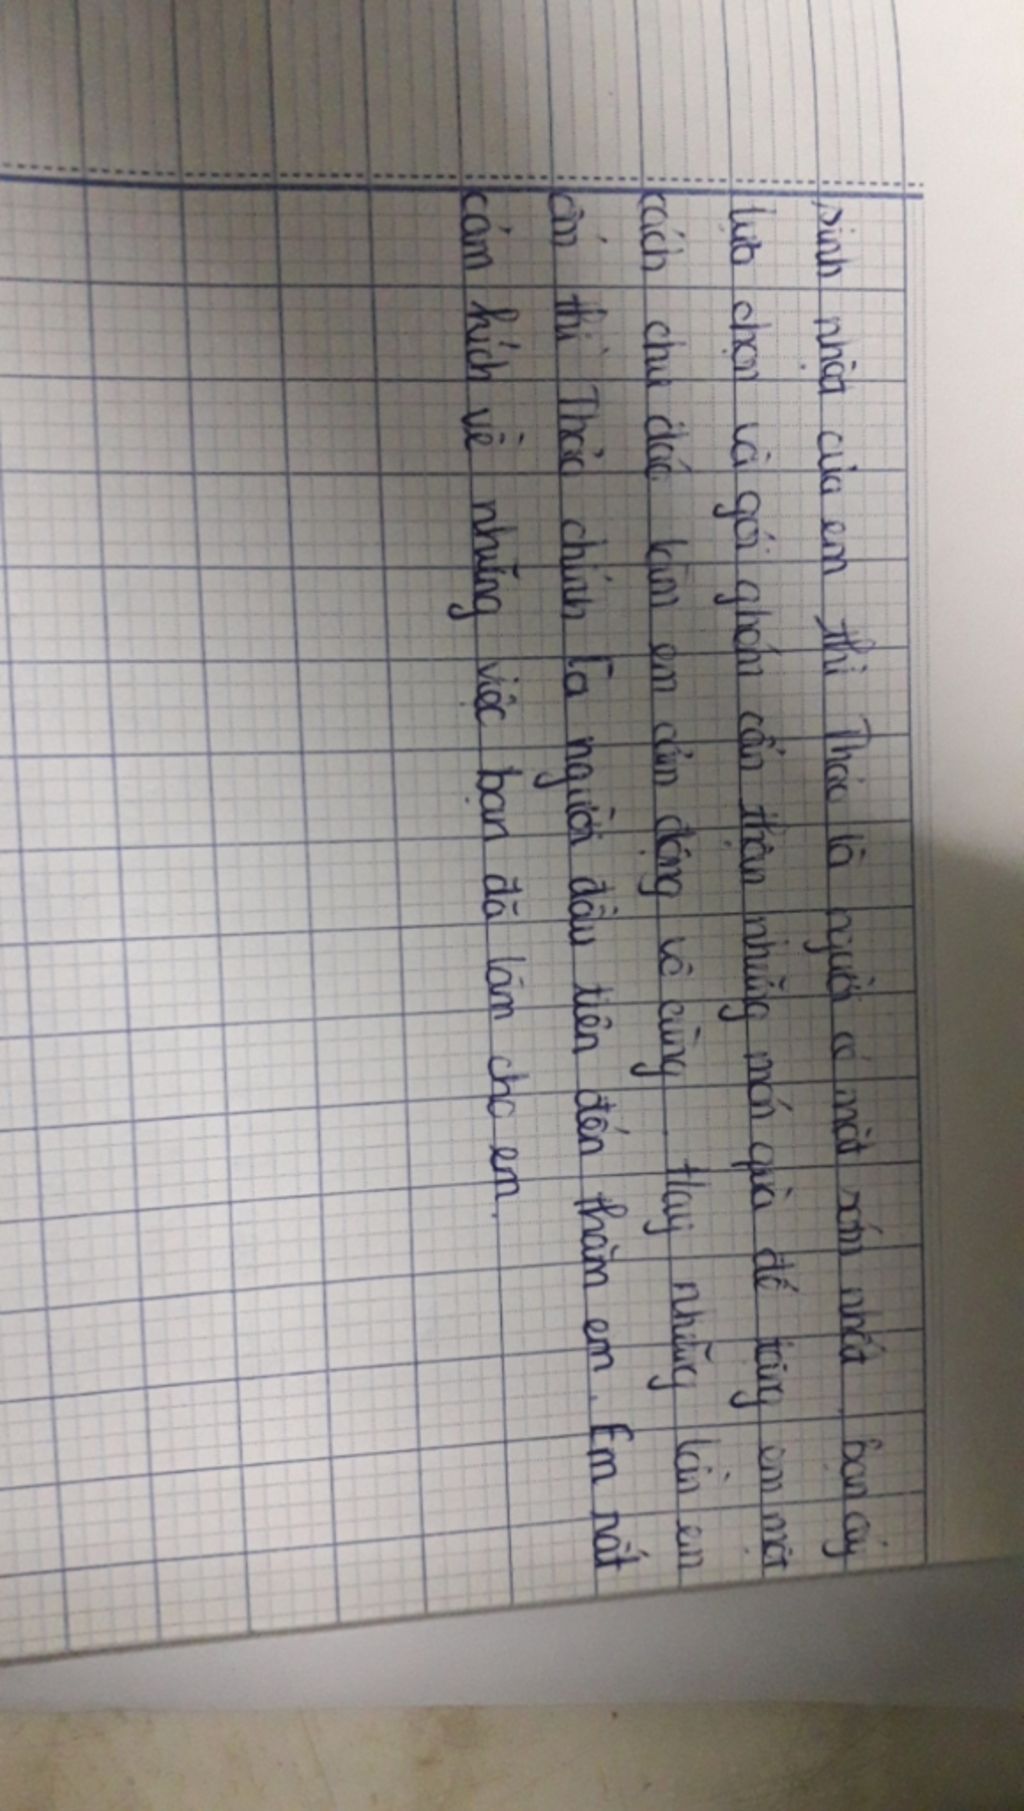 sinh nhật của em thì Thảo là người có mặt sớm nhất, bạn ấy
lựa chọn và gói ghém cẩn thận những món quà để tặng em một
cách chu đáo làm em cảm động vô cùng. Hay những lần em
ốm thì Thảo chính là người đầu tiên đến thăm em. Em rất
cảm kích về những việc bạn đã làm cho em.